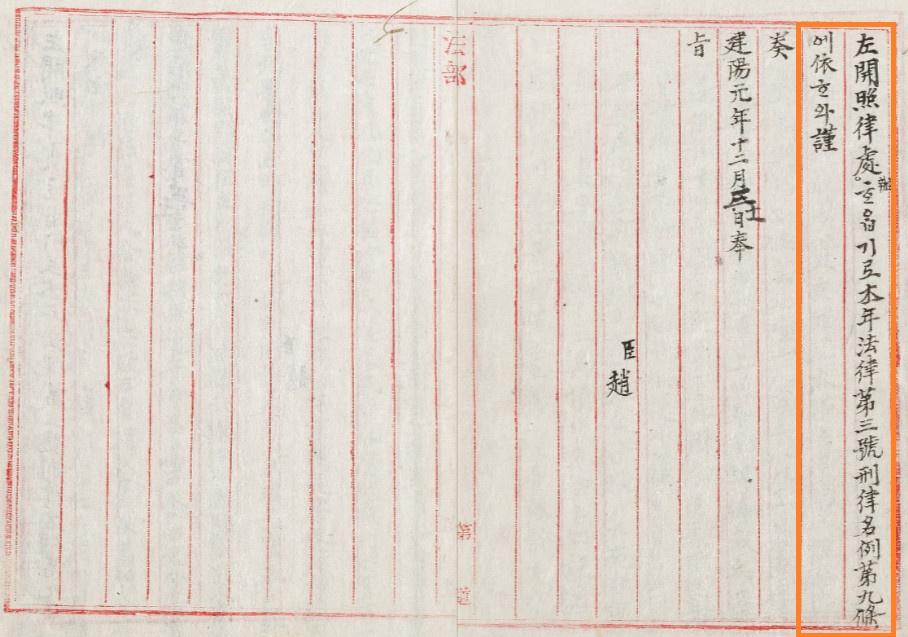 左開照律處辦ᄒᆞᄋᆞᆸ기로本年法律第三號刑律名例第九條
에依ᄒᆞ와謹
奏
建陽元年十二月 日奉
旨
臣趙
法部
第 道